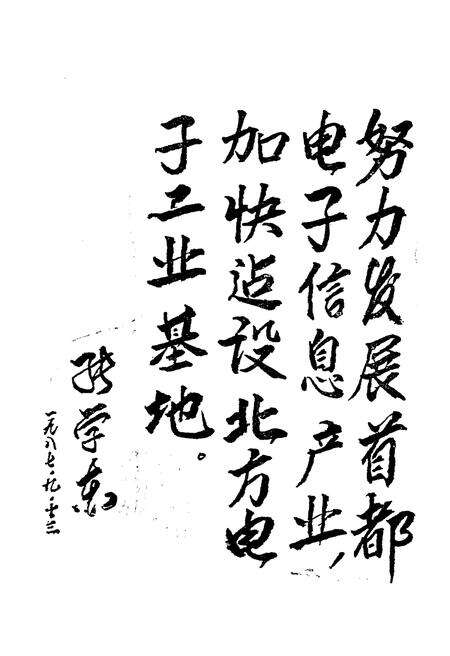 努力发展首都
电子信息产业，
加快迠设北方电
子工业基地。
张学东
一九八七·九·